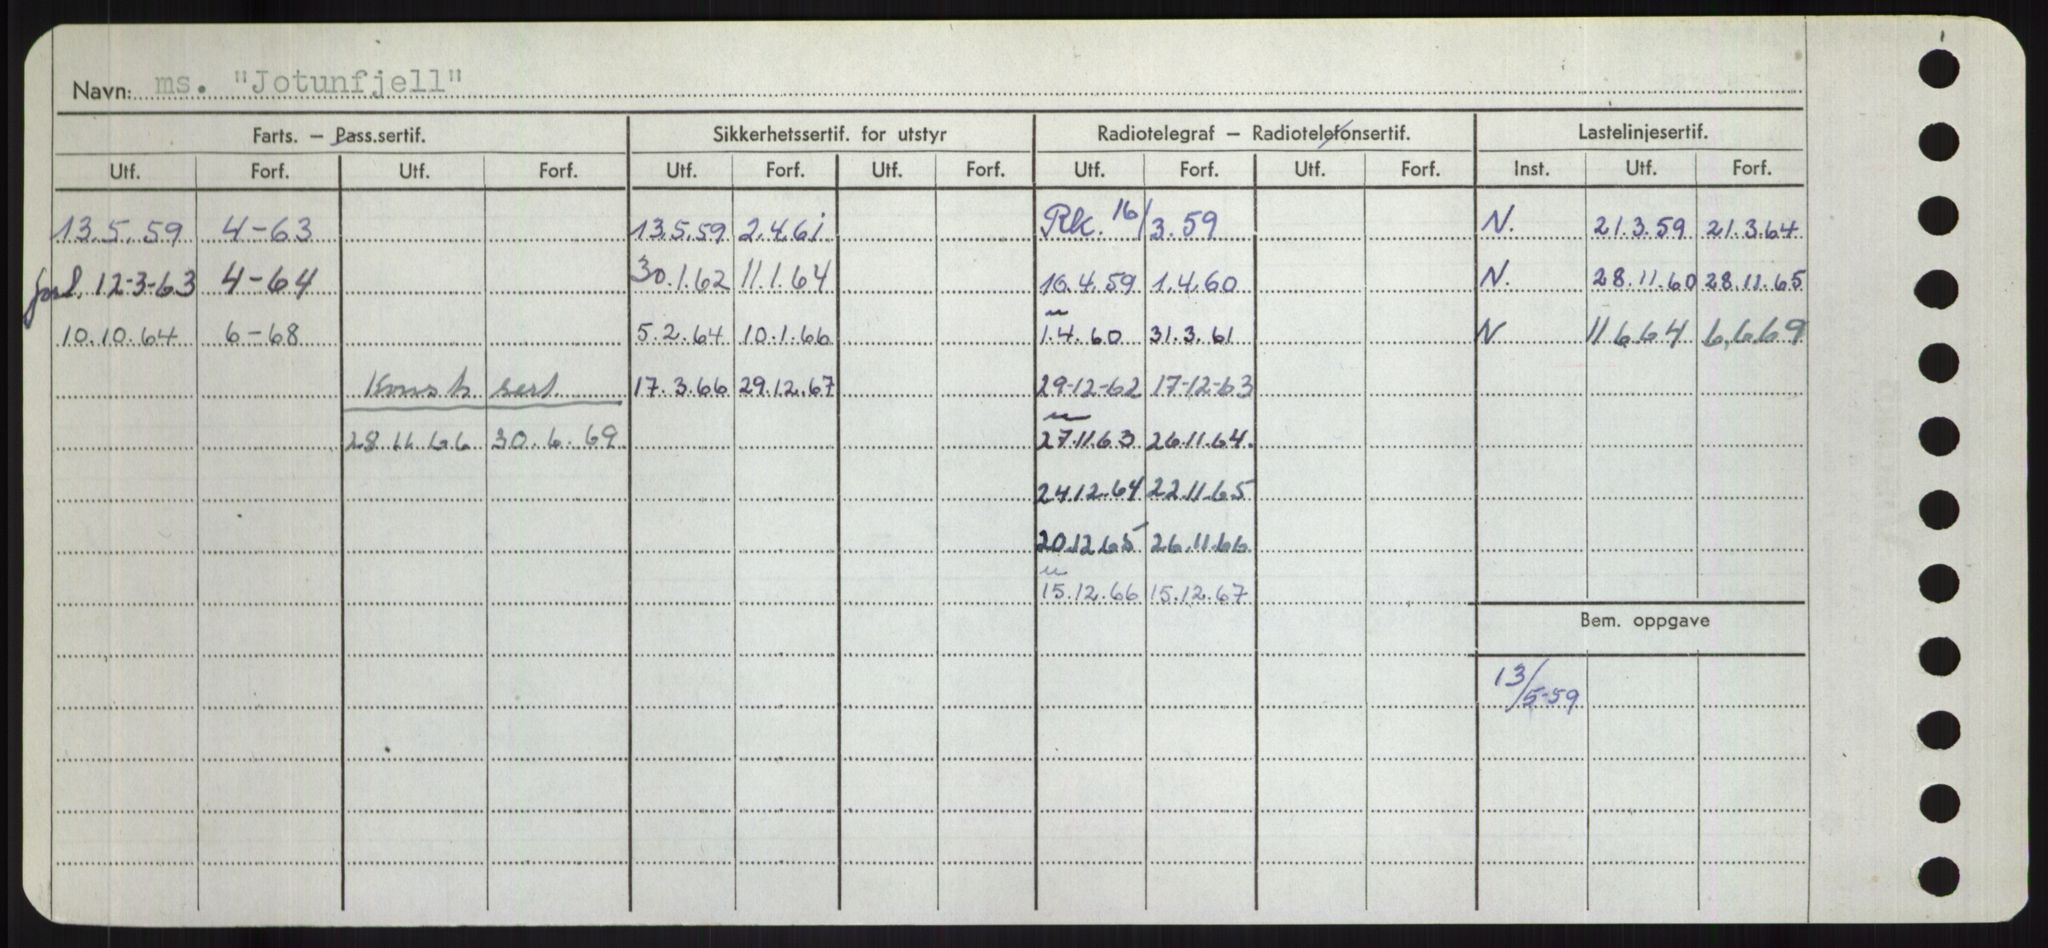 Navn: ms. "Jotunfjell"
Farts. — Pass.sertif. Sikkerhetssertif. for utstyr Radiotelegraf — Radiotelefonsertif. Lastelinjesertif.
Utf. Forf. Utf. Forf. Utf. Forf. Utf. Forf. Utf. Forf. Utf. Forf. Inst. Utf. Forf.
13.5.59 4-63 13.5.59 2.4.61 Rk. 16/3.59 N. 21.3.59 21.3.64
forl. 12-3-63 4-64 30.1.62 11.1.64 16.4.59 1.4.60 N. 28.11.60 28.11.65
10.10.64 6-68 5.2.64 10.1.66 1.4.60 31.3.61 N 11664 6.6.69
Konst. sert. 17.3.66 29.12.67 29-12-62 17-12-63
28.11.66 30.6.69 27.11.63 26.11.64.
24.12.64 22.11.65
20.12.65 26.11.66
15.12.66 15.12.67
Bem. oppgave
13/5-59